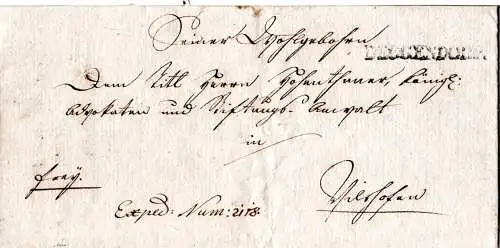 Seiner Wohlgebohrn
DEGGENDORF.
Dem Titl Herrn Hohenthaner, königl:
Advokaten und Stiftungs-Anwalt
in
frey.
Vilshofen
Exped: Num: 2118.